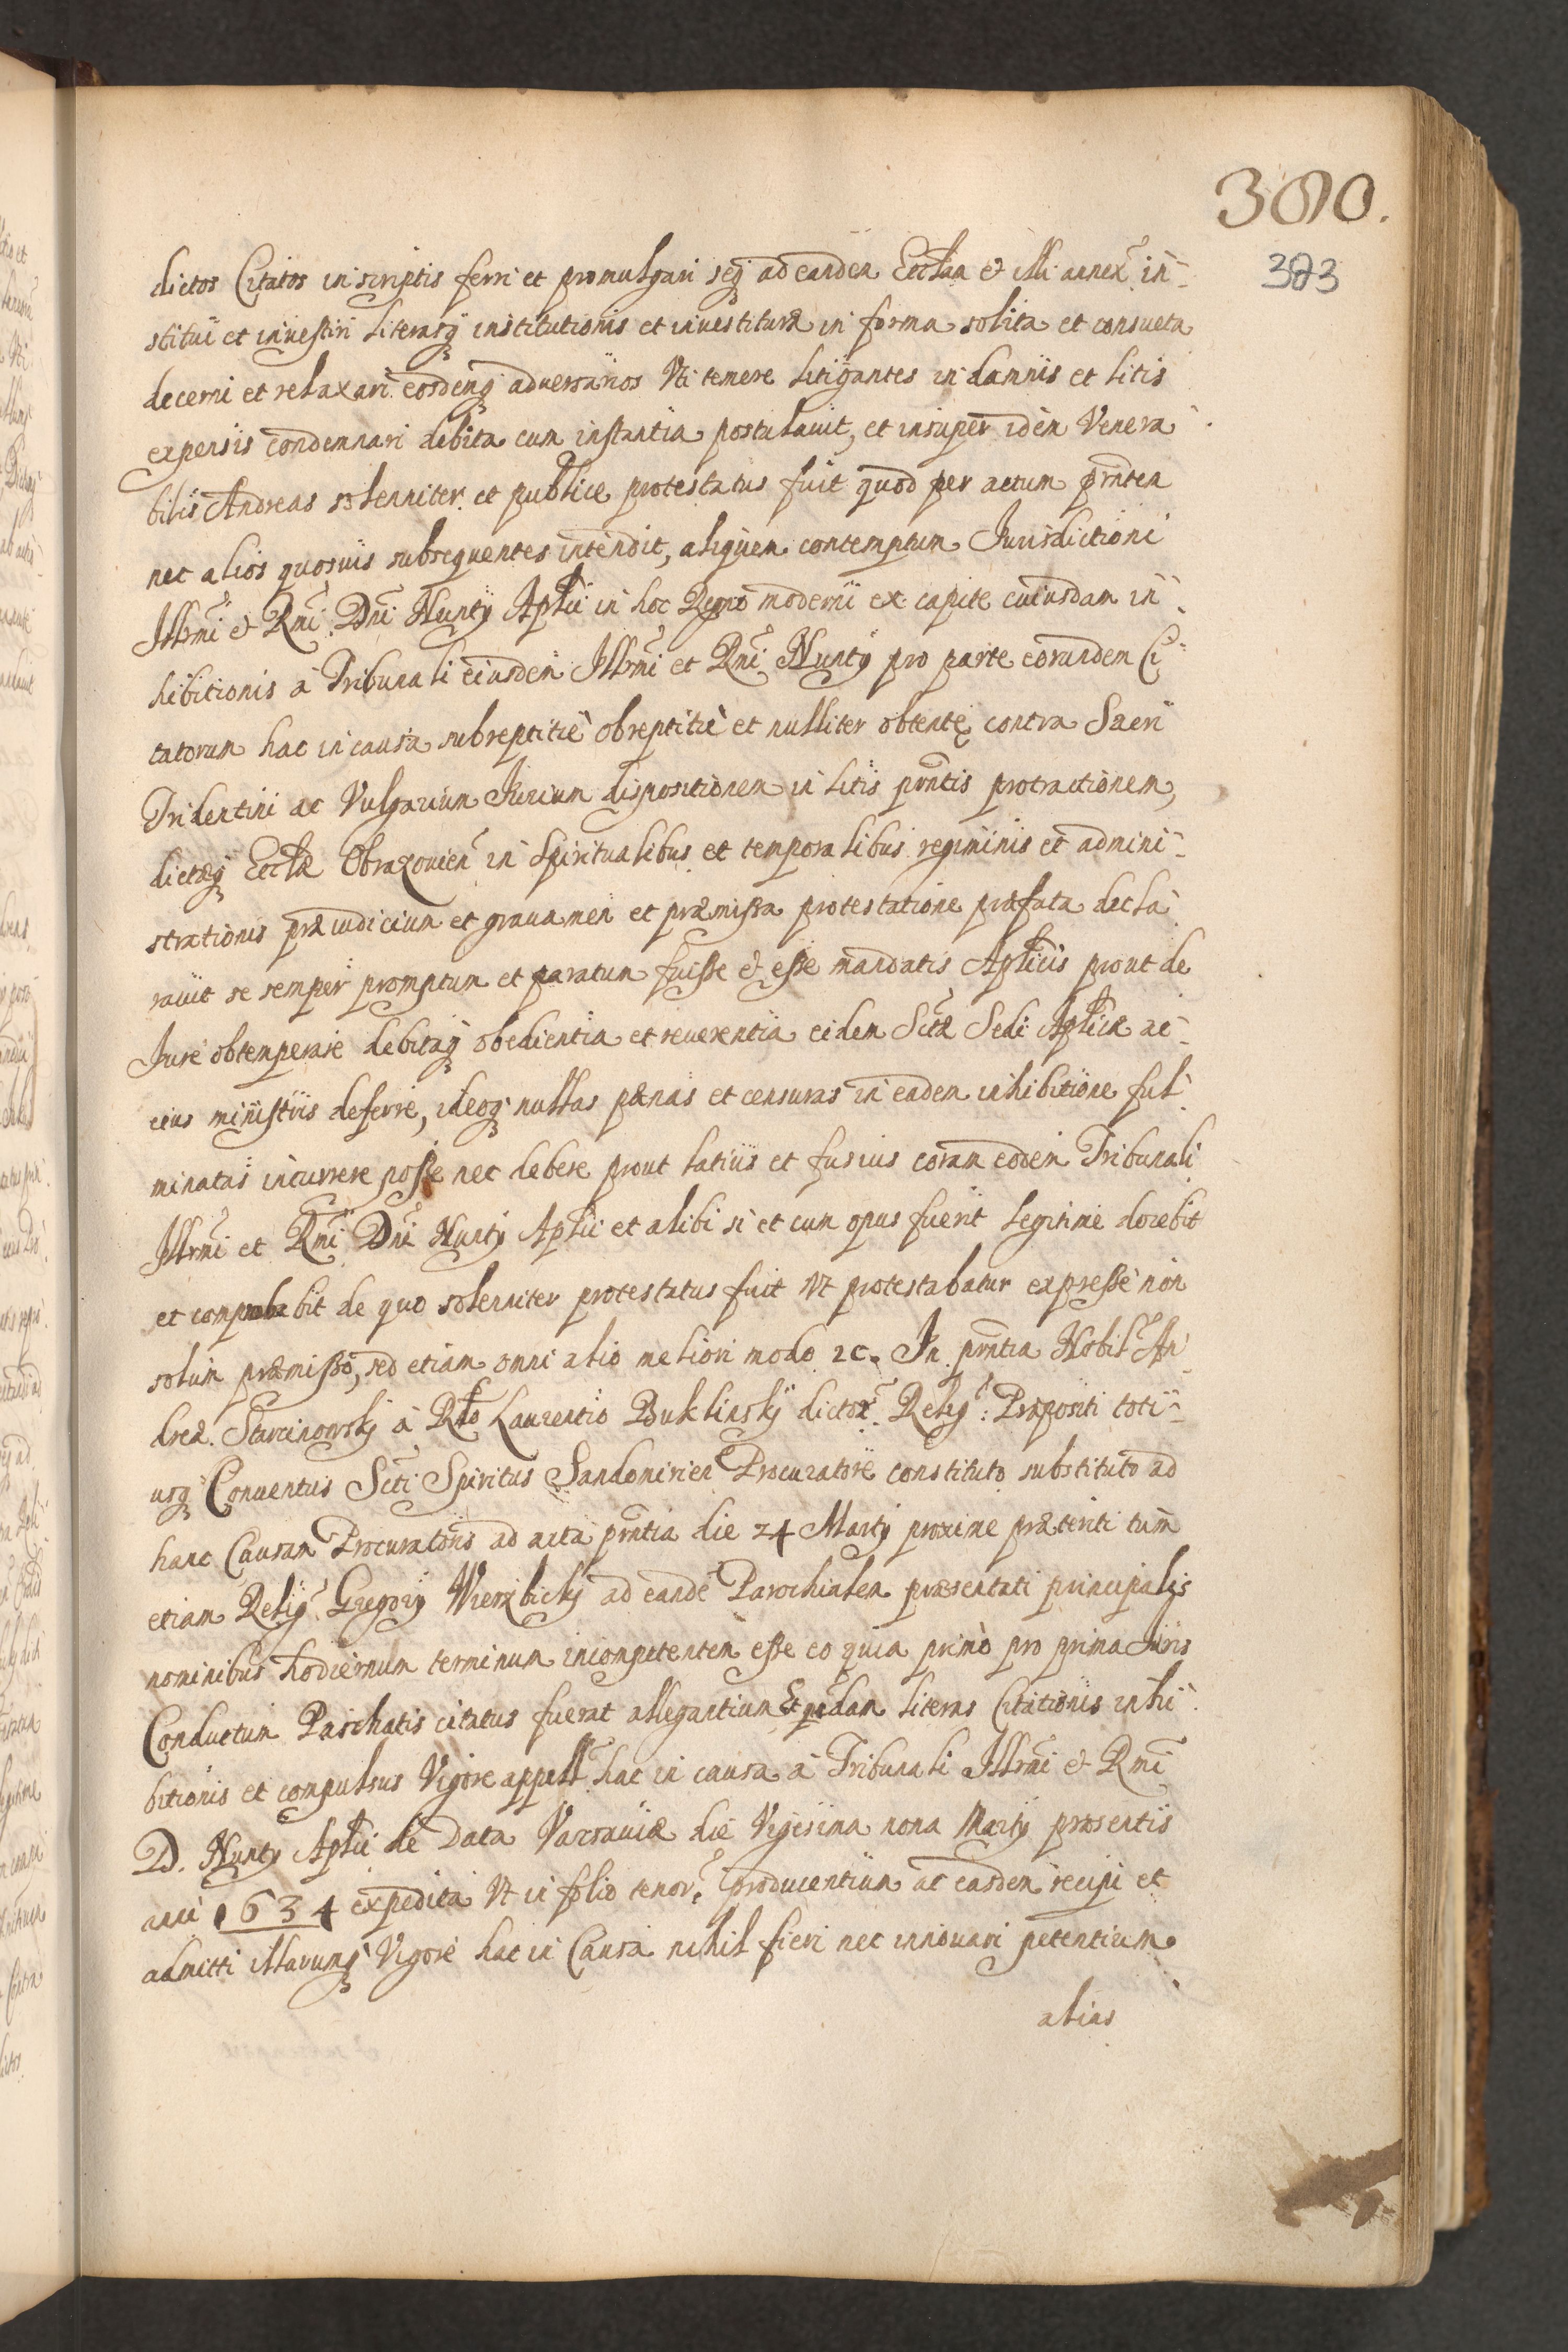 380.
383
dictos Citatos in scriptis ferri et promulgari seq ad eandem Eccłam et illi annex in-
stitui et inuestiri literasq institutionis et inuestituræ in forma solita et consueta
decerni et relaxari eosdemq aduersarios Vti temere litigantes in damnis et litis
expensis condemnari debita cum instantia postulauit, et insuper idem Venera
bilis Andreas solenniter et publice protestatus fuit quod per actum prntem
nec alios quosuis subsequentes intendit, aliquem contemptum Jurisdictioni
Illrmi et Rmi Dni Nuntij Aplici in hoc Regno moderni ex capite cuiusdam in
hibitionis à Tribunali eiusdem Illrmi et Rmi Nuntij pro parte eorundem Ci
tatorum hac in causa subreptitiè obreptitiè et nulliter obtentę contra Sacri
Tridentini ac Vulgarium Jurium dispositionem in litis prntis protractionem,
dictæq Eccłæ Obrazouien in Spiritualibus et temporalibus regiminis et admini-
strationis præiudicium et grauamen et præmissa protestatione præfata decla
rauit se semper promptum et paratum fuisse et esse mandatis Aplicis prout de
Jure obtemperare debitaq obedientia et reuerentia eidem Sctæ Sedi Aplicæ ac
eius ministris deferre, ideoq nullas pænas et censuras in eadem inhibitione ful
minatas incurrere posse nec debere prout latius et fusius coram eodem Tribunali
Illrmi et Rmi Dni Nuntij Aplici et alibi si et cum opus fuerit legitime docebit
et comprobabit de quo solenniter protestatus fuit Vt protestabatur expressè non
solum præmisso, sed etiam omni alio meliori modo 2c. In prntia Nobil An
dreæ Starcinowskj à Rdo Laurentio Buklinskj dictor Relig: Præpositi toti-
usq Conuentus Scti Spiritus Sandomirien Procuratore constituto substituto ad
hanc Causam Procuratoris ad acta prntia die 24 Martij proxime præteriti tum
etiam Relig Gregorij Wierzbickj ad eande Parochialem præsentati principalis
nominibus hodiernum terminum incompetentem esse eo quia primò pro prima Juris
Conductum Paschatis citatus fuerat allegantium Et qdam literas Citationis inhi
bitionis et compulsus Vigore appell hac in causa à Tribunali Illrmi et Rmi
D. Nuntij Aplici de Data Varsauiæ die Vigesima nona Martij præsentis
anni 1634 expedita Vt in folio tenor producentium ac easdem recipi et
admitti illarumq Vigore hac in Causa nihil fieri nec innouari petentium
alias